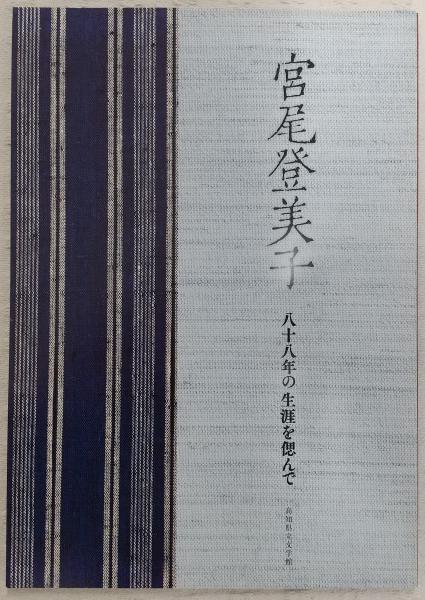 宮尾登美子
八十八年の生涯を偲んで
高知県立文学館